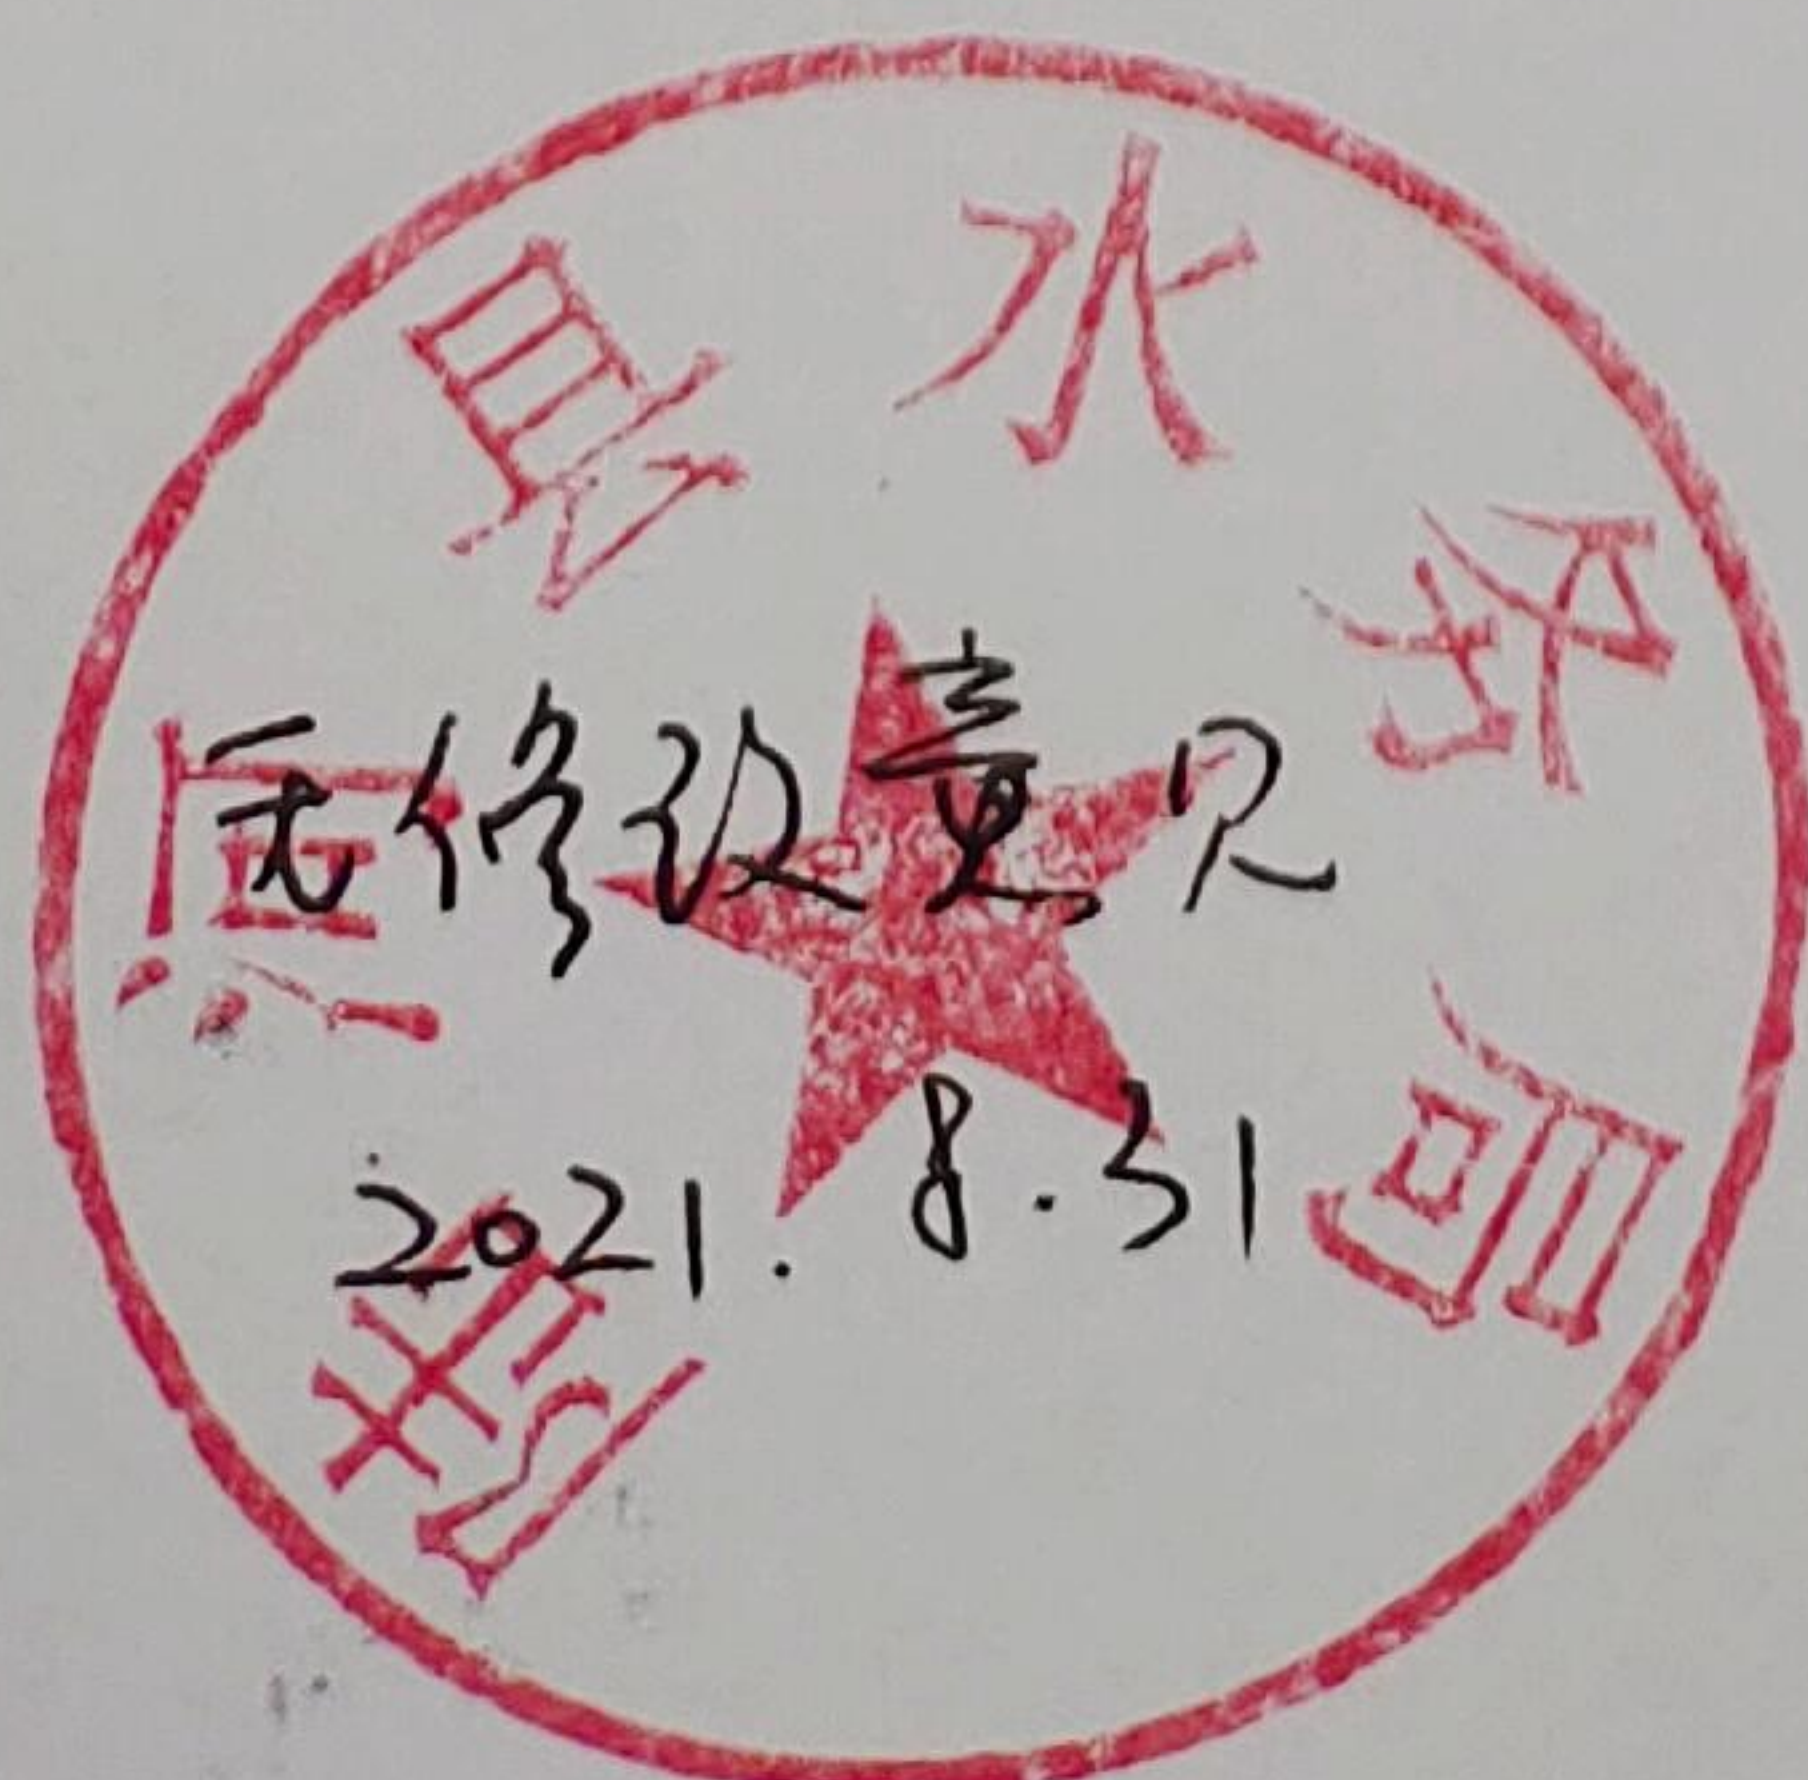 县水务局
无修改意见
2021. 8.31